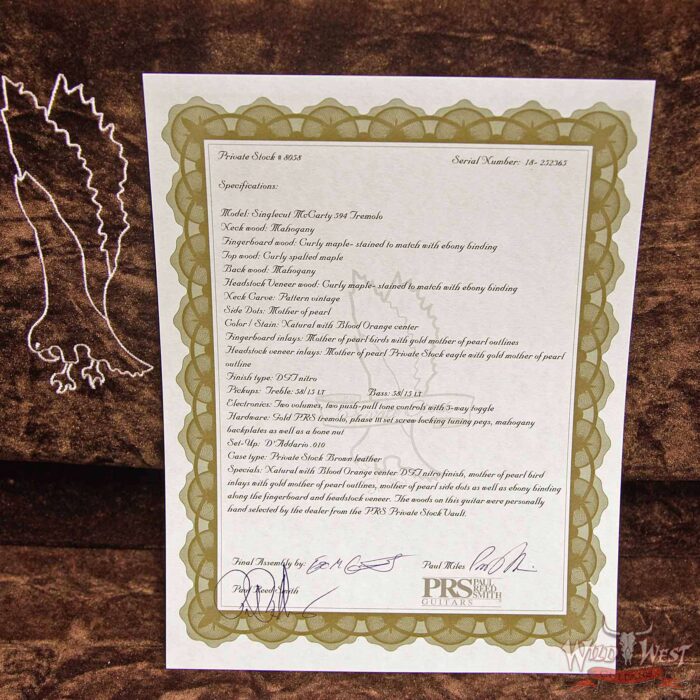 Private Stock # 8058 Serial Number: 18- 252365
Specifications:
Model: Singlecut McCarty 594 Tremolo
Neck wood: Mahogany
Fingerboard wood: Curly maple- stained to match with ebony binding
Top wood: Curly spalted maple
Back wood: Mahogany
Headstock Veneer wood: Curly maple- stained to match with ebony binding
Neck Carve: Pattern vintage
Side Dots: Mother of pearl
Color / Stain: Natural with Blood Orange center
Fingerboard inlays: Mother of pearl birds with gold mother of pearl outlines
Headstock veneer inlays: Mother of pearl Private Stock eagle with gold mother of pearl
outline
Finish type: DFT nitro
Pickups: Treble: 58/15 LT Bass: 58/15 LT
Electronics: Two volumes, two push-pull tone controls with 3-way toggle
Hardware: Gold PRS tremolo, phase III set screw locking tuning pegs, mahogany
backplates as well as a bone nut
Set-Up: D'Addario .010
Case type: Private Stock Brown leather
Specials: Natural with Blood Orange center DFT nitro finish, mother of pearl bird
inlays with gold mother of pearl outlines, mother of pearl side dots as well as ebony binding
along the fingerboard and headstock veneer. The woods on this guitar were personally
hand selected by the dealer from the PRS Private Stock Vault.
Final Assembly by: Paul Miles
Paul Reed Smith
PRS PAUL
REED
SMITH
GUITARS
WILD WEST
GUITARS